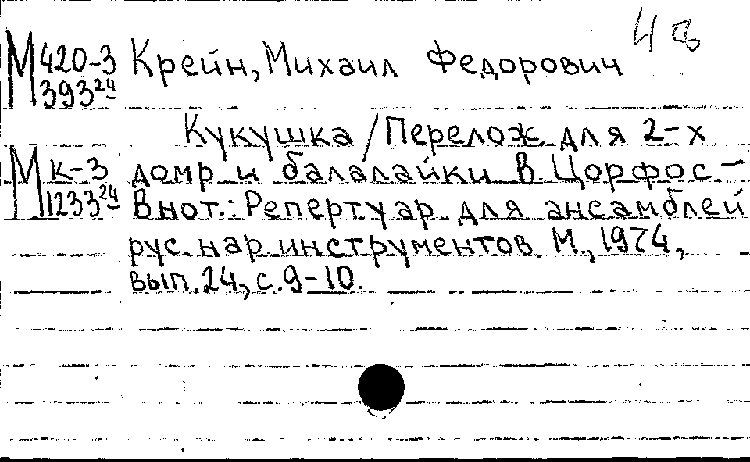 4 в
М 420-3 Крейн, Михаил Федорович
393 24
Кукушка / Перелож. для 2-х
М к-3 домр и балалайки В. Цорфос —
1233 24 В нот.: Репертуар для ансамблей
рус. нар. инструментов. М., 1974,
вып. 24, с. 9-10.